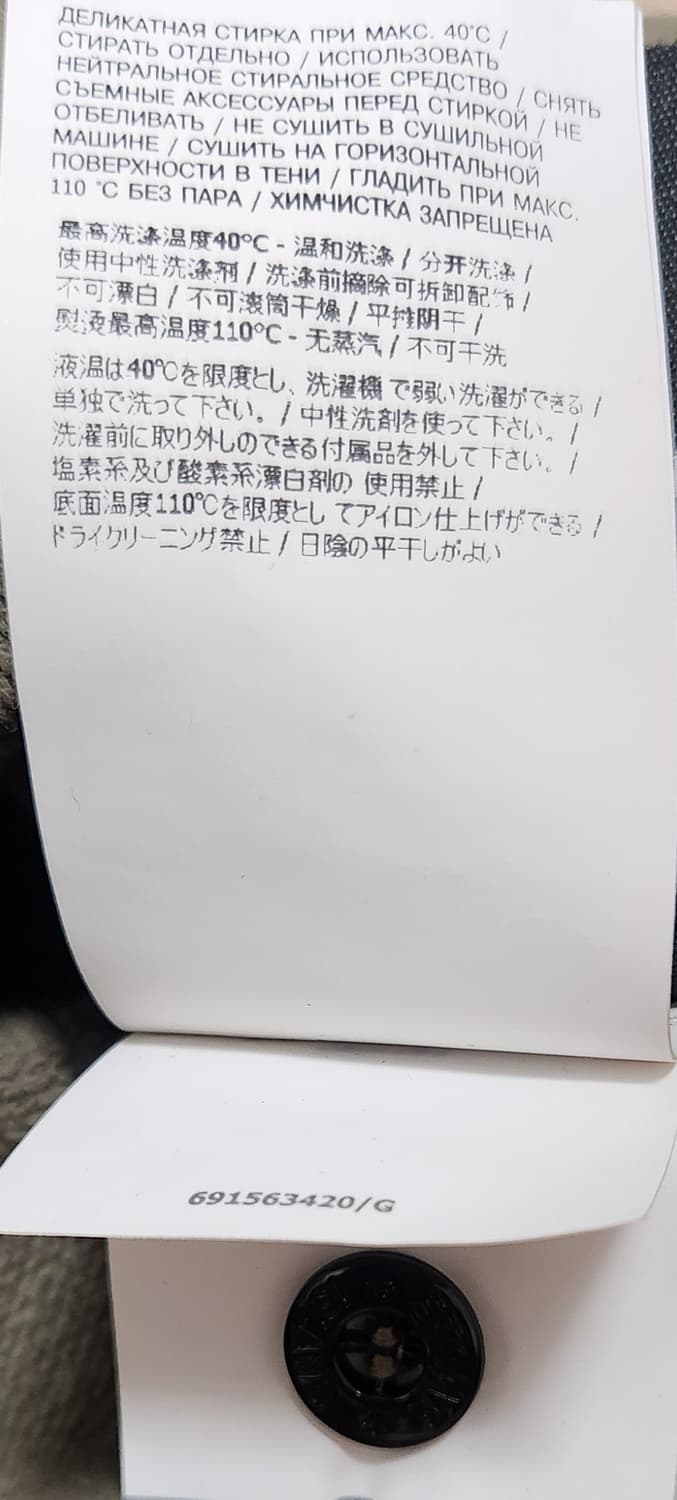 ДЕЛИКАТНАЯ СТИРКА ПРИ МАКС. 40°C /
СТИРАТЬ ОТДЕЛЬНО / ИСПОЛЬЗОВАТЬ
НЕЙТРАЛЬНОЕ СТИРАЛЬНОЕ СРЕДСТВО / СНЯТЬ
СЪЕМНЫЕ АКСЕССУАРЫ ПЕРЕД СТИРКОЙ / НЕ
ОТБЕЛИВАТЬ / НЕ СУШИТЬ В СУШИЛЬНОЙ
МАШИНЕ / СУШИТЬ НА ГОРИЗОНТАЛЬНОЙ
ПОВЕРХНОСТИ В ТЕНИ / ГЛАДИТЬ ПРИ МАКС.
110 °C БЕЗ ПАРА / ХИМЧИСТКА ЗАПРЕЩЕНА
最高洗涤温度40°C - 温和洗涤 / 分开洗涤 /
使用中性洗涤剂 / 洗涤前摘除可拆卸配饰 /
不可漂白 / 不可滚筒干燥 / 平摊阴干 /
熨烫最高温度110°C - 无蒸汽 / 不可干洗
液温は40℃を限度とし、洗濯機 で弱い洗濯ができる /
単独で洗って下さい。 / 中性洗剤を使って下さい。 /
洗濯前に取り外しのできる付属品を外して下さい。 /
塩素系及び酸素系漂白剤の 使用禁止 /
底面温度110℃を限度とし てアイロン仕上げができる /
ドライクリーニング禁止 / 日陰の平干しがよい
691563420/G